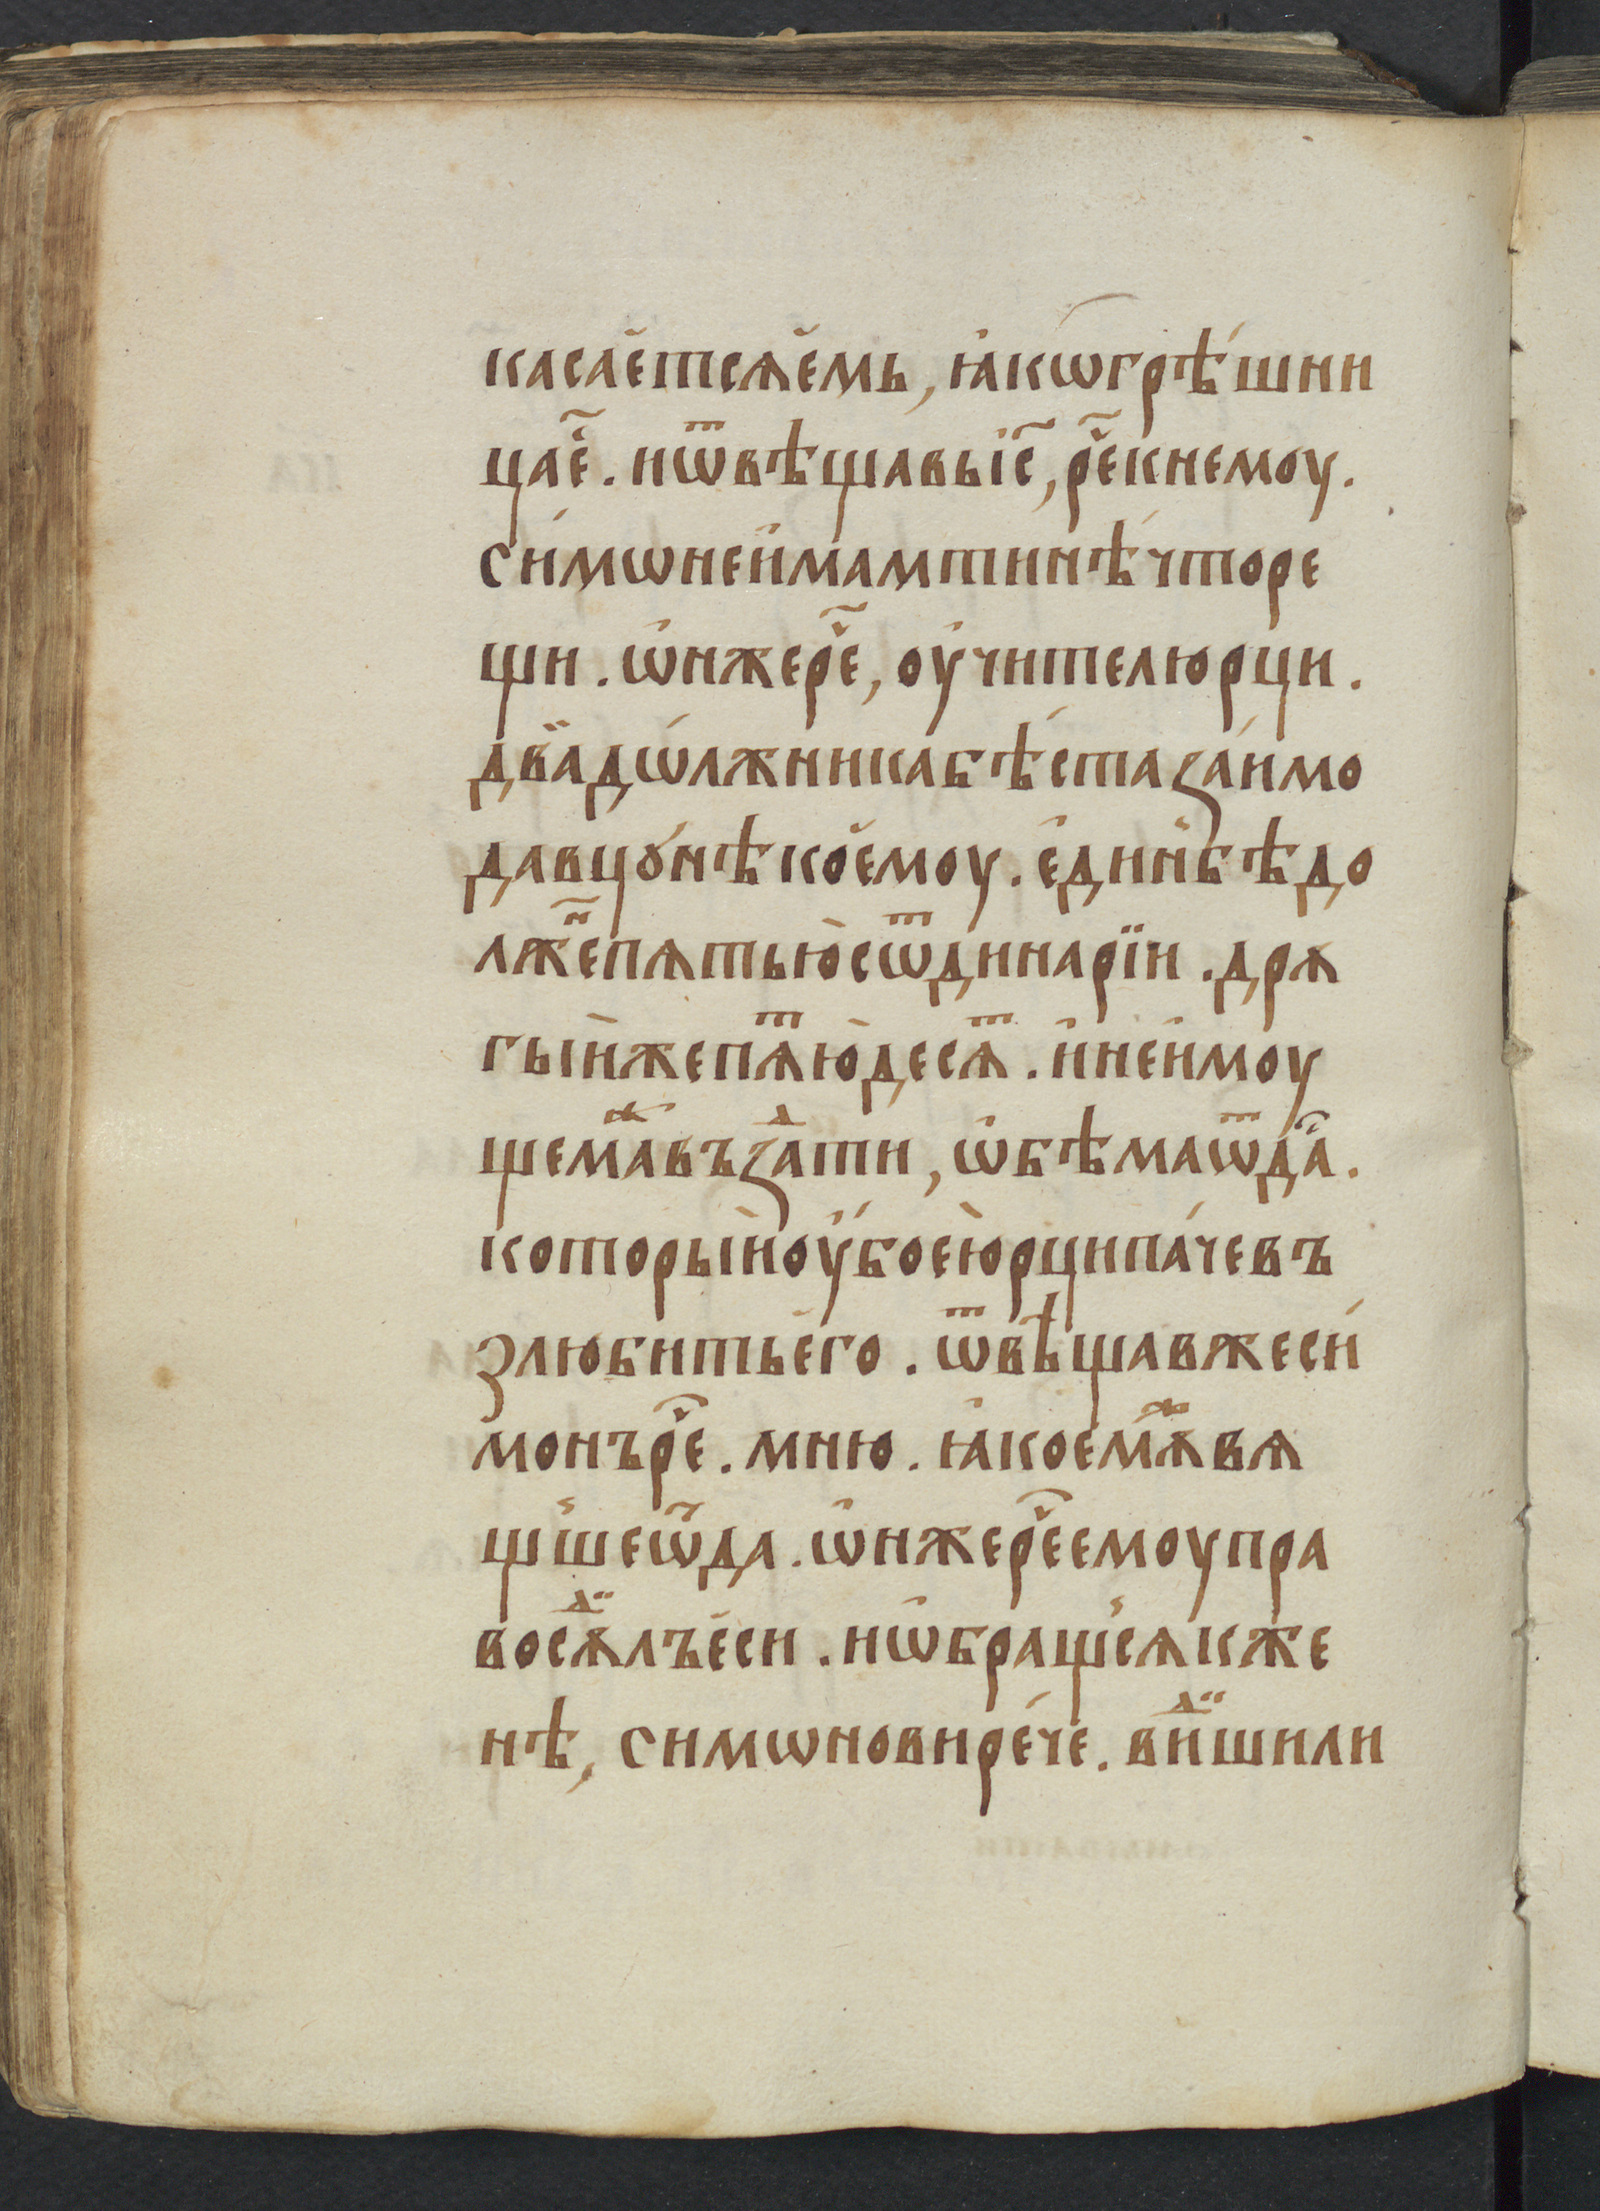 касаетсѧ̀емь, ꙗ҆кѡгрѣ́шни
цае҆̑. иѿвѣщавыі҃с, рече҃кнемоу.
си́мѡнеи҆мамтинѣ́что̀ре
щи. ѡ҆нжерⷱ҇е, оу҆чителюрци.
два̀дѡ́лжникабѣ́ста̀за́имо
давцꙋ́нѣкоемоу. е҆ди́нбѣдо
лжⷩ҇епѧтью̀сѿдинарїи. дрѧ
гы́ижепѧⷮю̀десѧⷮ. и҆неи҆моу
щемаⷤвъздати, ѡ҆бѣмаѿдаⷭ҇.
которы́иоу҆боею̀рципа́чевъ
злюбитье҆го. ѿвѣщавжеси́
монърⷱ҇е. мню. ꙗ҆коемѧⷤвѧ
щшеѿда. ѡ҆нжерⷱ҇еемоупра
восѧⷣлъе҆си. иѡ҆бращсѧкже
нѣ, симѡновире́че. виⷣшили